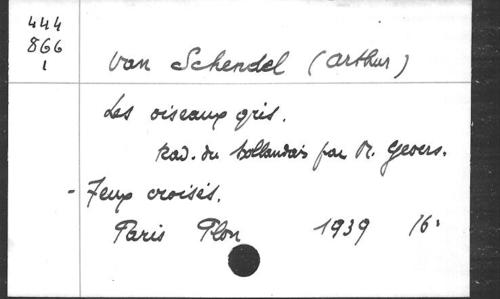 444
866
1
Van Schendel (Arthur)
Les oiseaux gris.
Trad. du hollandais par M. Gevers.
- Feux croisés.
Paris Plon 1939 16°